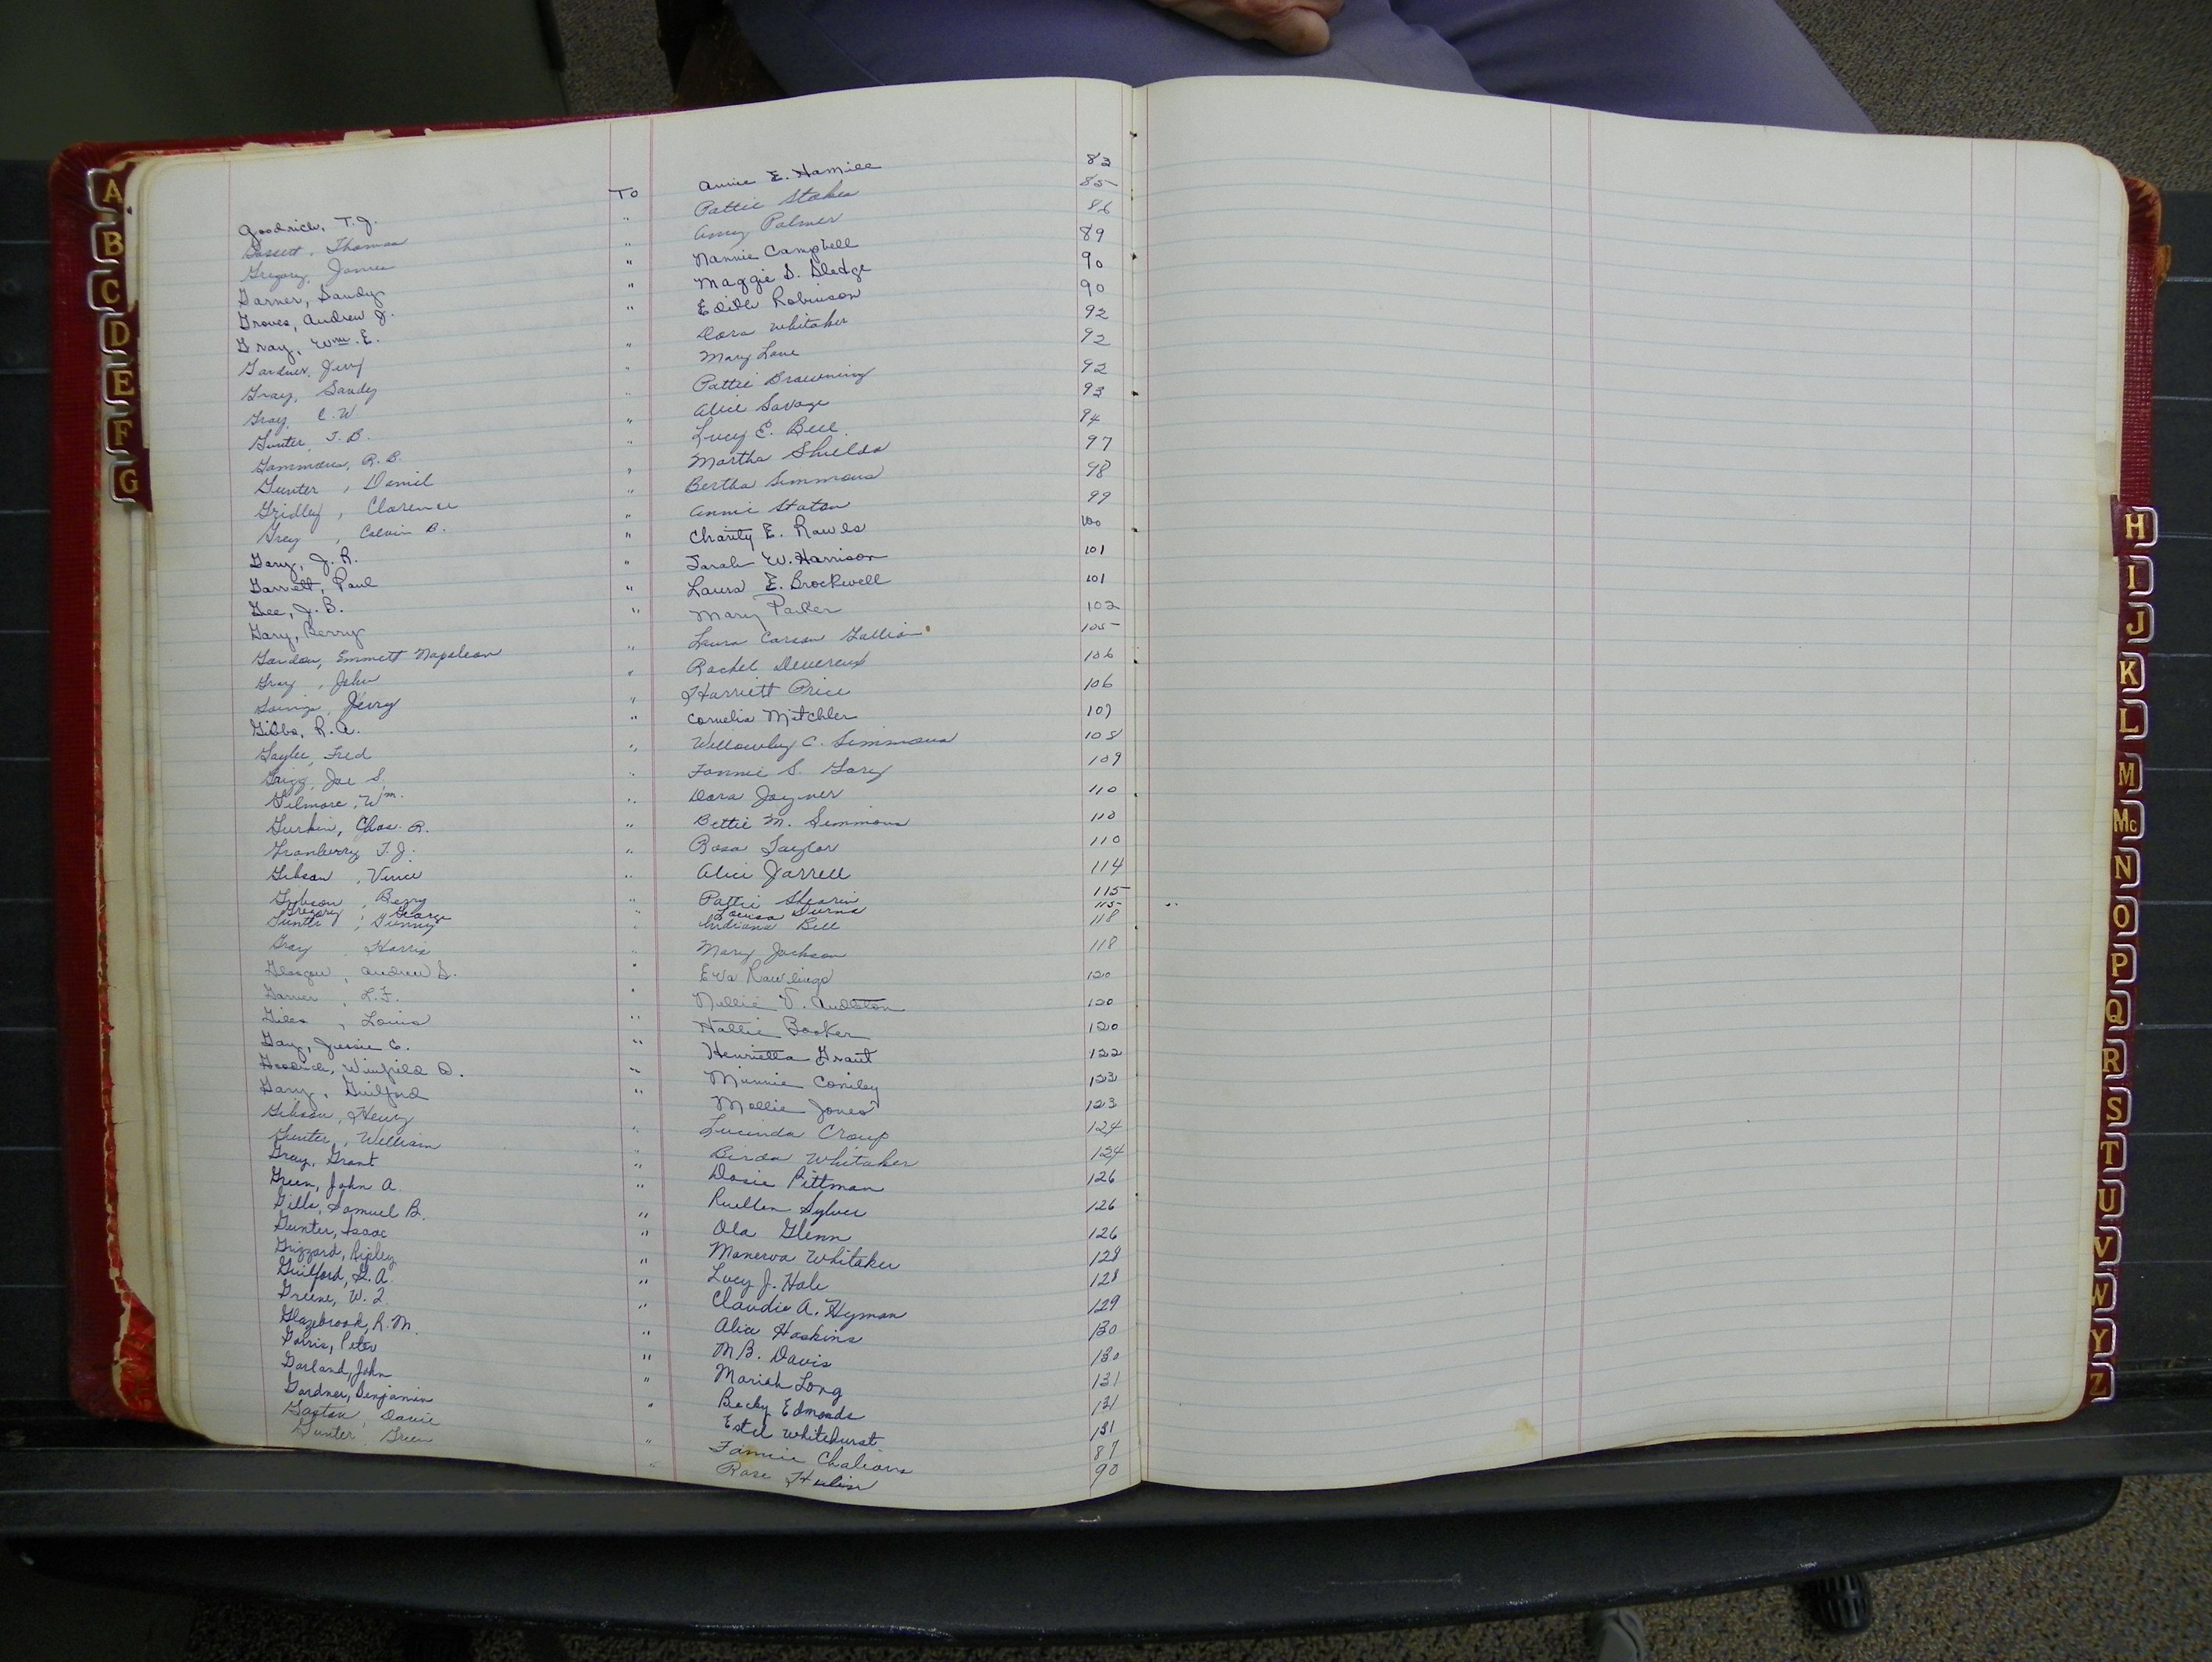 Goodrich, T. J. To Annie E. Hamill 83
Gossett, Thomas " Pattie Stokes 85
Gregory, James " Amy Palmer 86
Garner, Sandy " Nannie Campbell 89
Groves, Andrew J. " Maggie D. Sledge 90
Gray, Wm. E. " Edith Robinson 90
Gardner, Jerry " Dora Whitaker 92
Gray, Sandy " Mary Lane 92
Gray, C. W. " Pattie Browning 92
Gunter, J. B. " Alice Savage 93
Gammons, R. B. " Lucy E. Bell 94
Gunter, Daniel " Martha Shields 97
Gridley, Clarence " Bertha Simmons 98
Grey, Calvin B. " Annie Staton 99
Gary, J. R. " Charity E. Rawls 100
Garrett, Paul " Sarah W. Harrison 101
Gee, J. B. " Laura E. Brockwell 101
Gary, Berry " Mary Parker 102
Gordon, Emmett Napoleon " Laura Carson Gallion 105
Gray, John " Rachel Devereux 106
Jerry " Harriett Price 106
Gibbs, R. A. " Cornelia Mitchler 107
Fred " Willowby C. Simmons 108
Grigg, Joe S. " Fannie S. Gary 109
Gilmore, Wm. " Dora Joyner 110
Gurkin, Chas. R. " Bettie M. Simmons 110
Granberry T. J. " Rosa Taylor 110
Gibson, Vince " Alice Jarrell 114
Gibson, Berry " Pattie Shearin 115
Gregory, George " Louisa 115
Gunter, " Indiana Bell 118
Gray, Harris " Mary Jackson 118
Glasgow, Andrew S. " Eva Rawlings 120
Garner, L. F. " Nellie V. 120
Giles, Louis " Hattie Booker 120
Gay, Jessie C. " Henrietta Grant 122
Goodrich, Winfield D. " Minnie Coniley 123
Gary, Guilford " Mollie Jones 123
Gibson, Henry " Lucinda Croup 124
Gunter, William " Birda Whitaker 124
Gray, Grant " Dosie Pittman 126
Green, John A. " Ruellen Sylver 126
Gills, Samuel B. " Ola Glenn 126
Gunter, Isaac " Manerva Whitaker 128
Grizzard, Ripley " Lucy J. Hale 128
Guilford, G. A. " Claudie A. Hyman 129
Greene, W. I. " Alice Hoskins 130
Glazebrook, R. M. " M B. Davis 130
Garris, Peter " Mariah Long 131
Garland, John " Becky Edmonds 131
Gardner, Benjamin Estel Whitehurst 131
Gaston, Davie " Fannie 87
Gunter, Green " Rose 90
A
B
C
D
E
F
G
H
I
J
K
L
M
Mc
N
O
P
Q
R
S
T
U
V
W
Y
Z